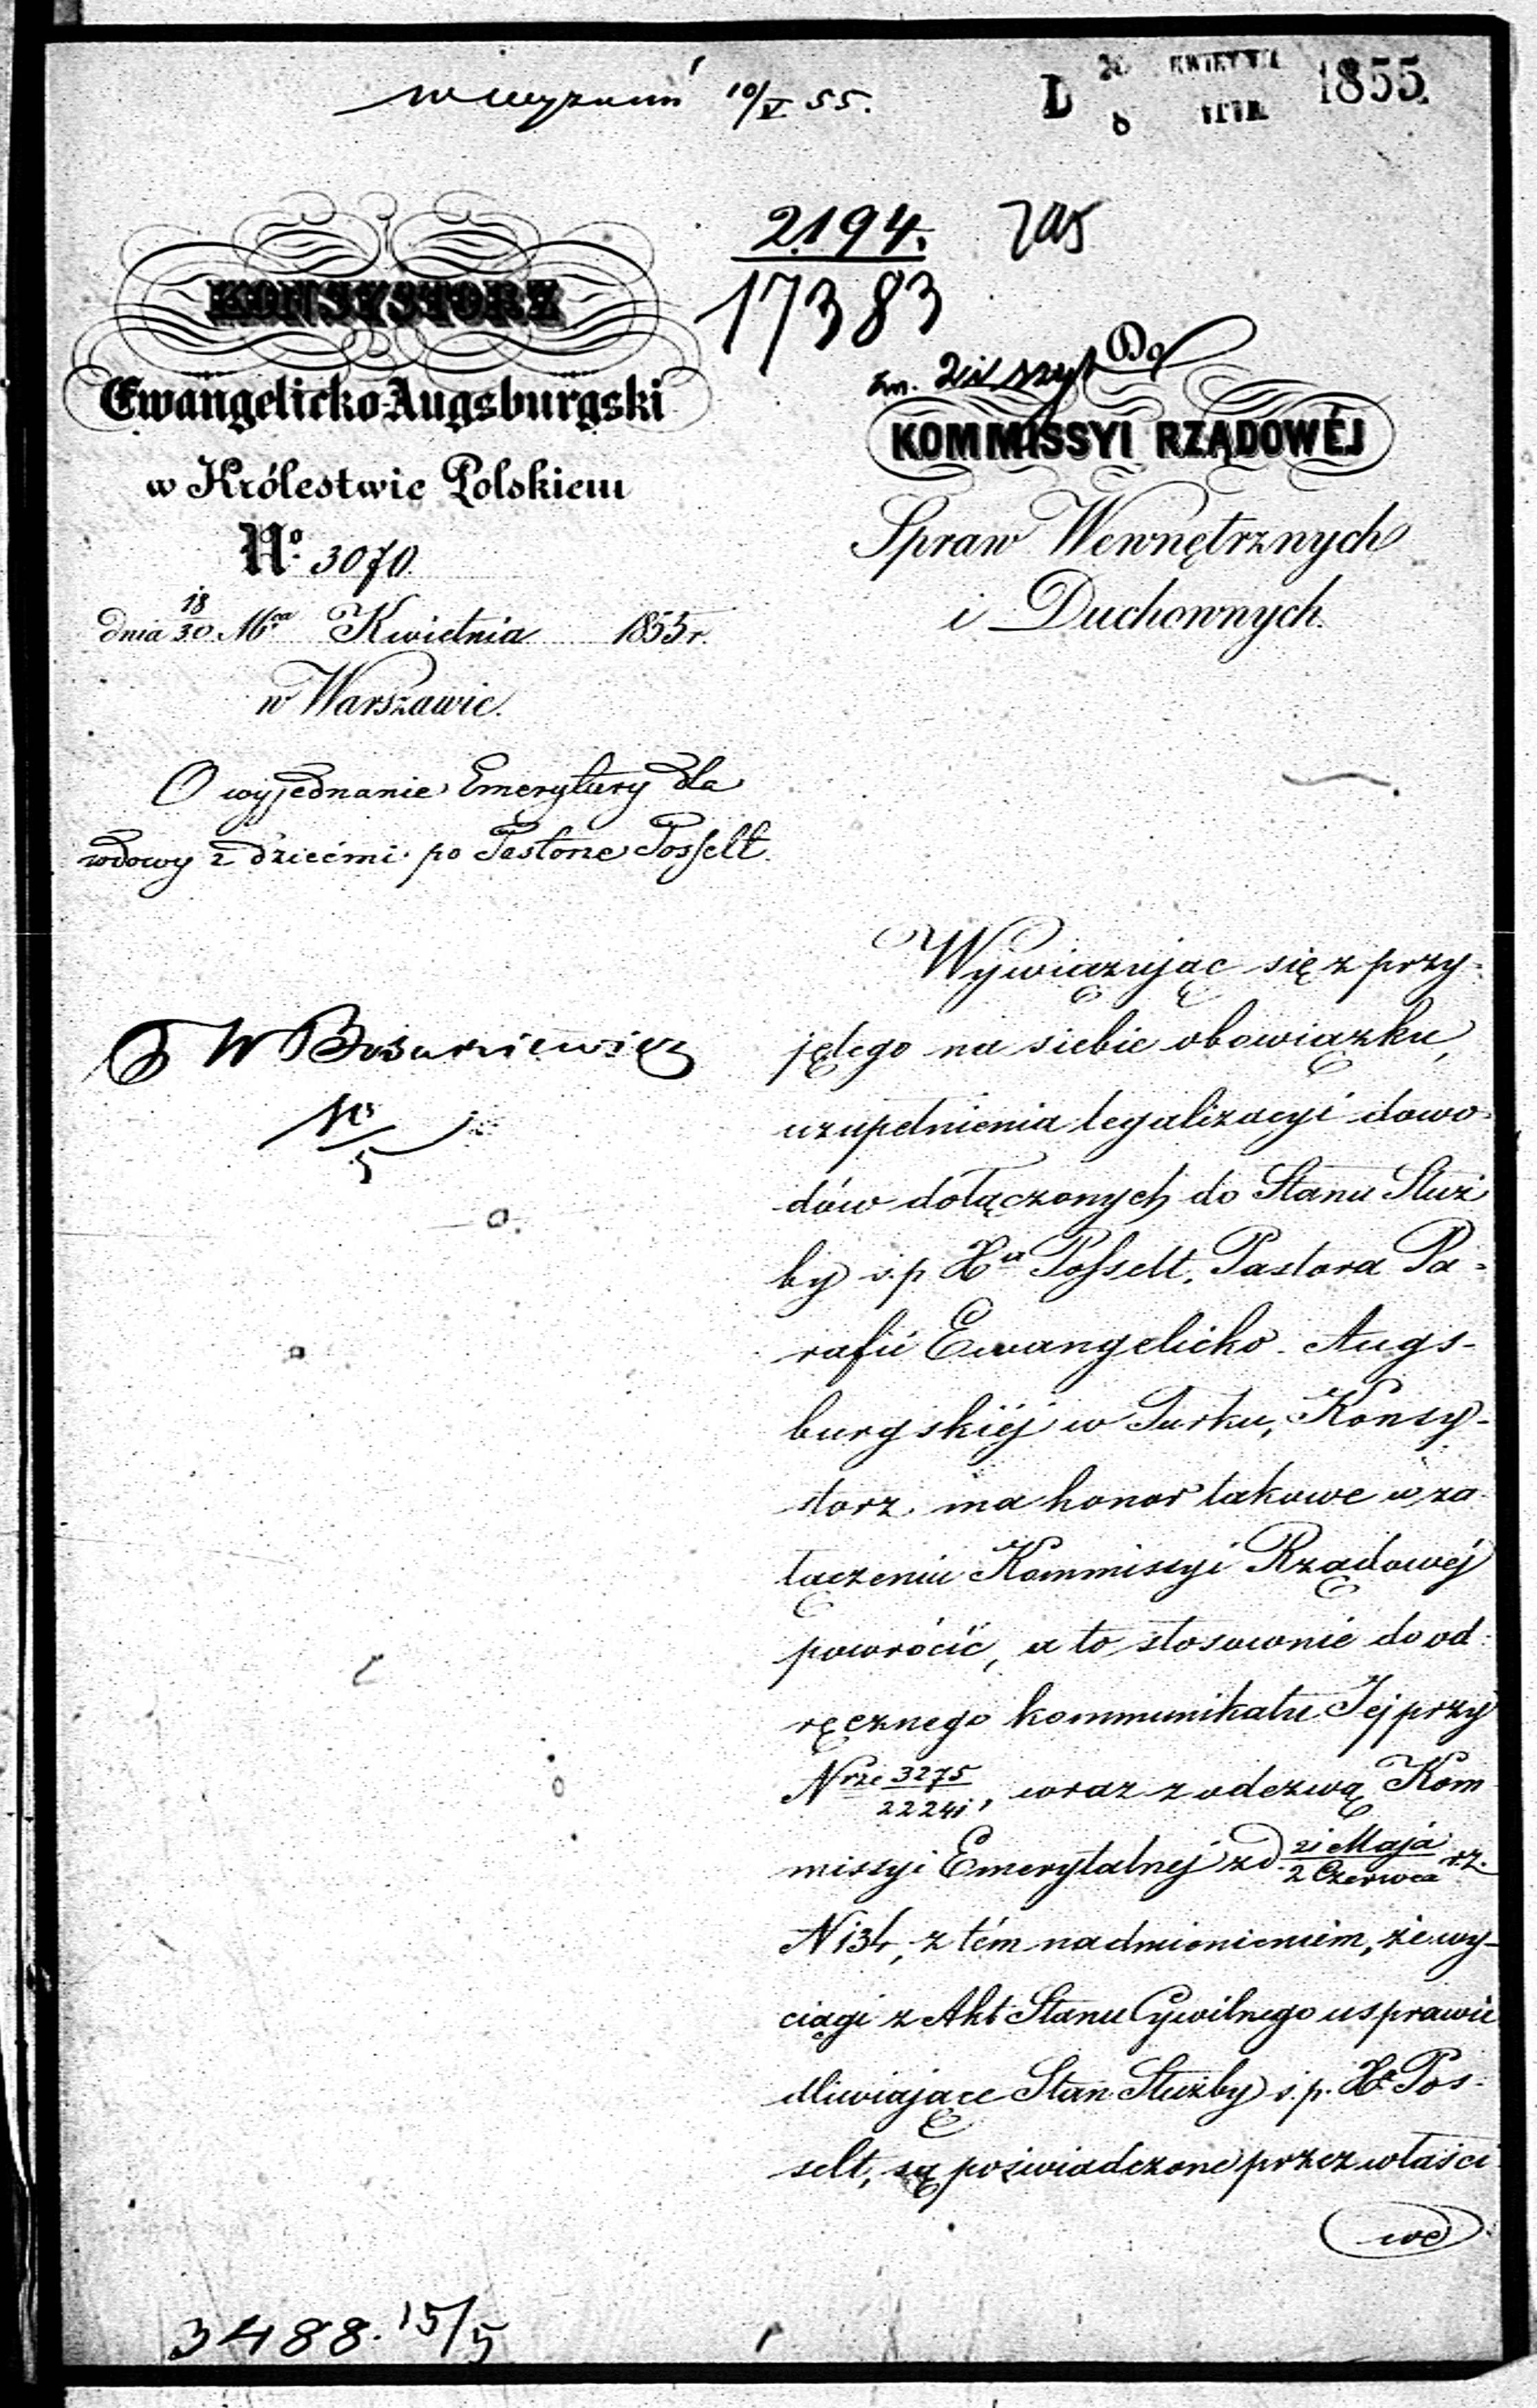 10/V 55.
D 26 KWIETNIA 1855.
8 MAJA
2194.
17383
KONSYSTORZ
Ewangelicko-Augsburgski
w Królestwie Polskiem
No. 3070.
dnia 18/30 Mca Kwietnia 1855 r.
w Warszawie.
Do
KOMMISSYI RZĄDOWÉJ
Spraw Wewnętrznych
i Duchownych.
O wyjednanie Emerytury dla
wdowy z dziećmi po Pastorze Posselt.
10/5
Wywiązując się z przy-
jętego na siebie obowiązku,
uzupełnienia legalizacyi dowo-
dów dołączonych do Stanu Służ
by ś.p. Xa Posselt, Pastora Pa-
rafii Ewangelicko-Augs-
burgskiéj w Turku, Konsy-
storz ma honor takowe w za-
łączeniu Kommissyi Rządowéj
powrócić, a to stosownie do od-
ręcznego kommunikatu Jej przy
Nrze 3275/22241, wraz z odezwą Kom
missyi Emerytalnéj z d. 21 Maja/2 Czerwca r.z.
N 134, z tém nadmienieniem, że wy-
ciągi z Akt Stanu Cywilnego usprawie
dliwiające Stan Służby ś.p. Xa Pos-
selt, są poświadczone przez właści
we
3488. 15/5